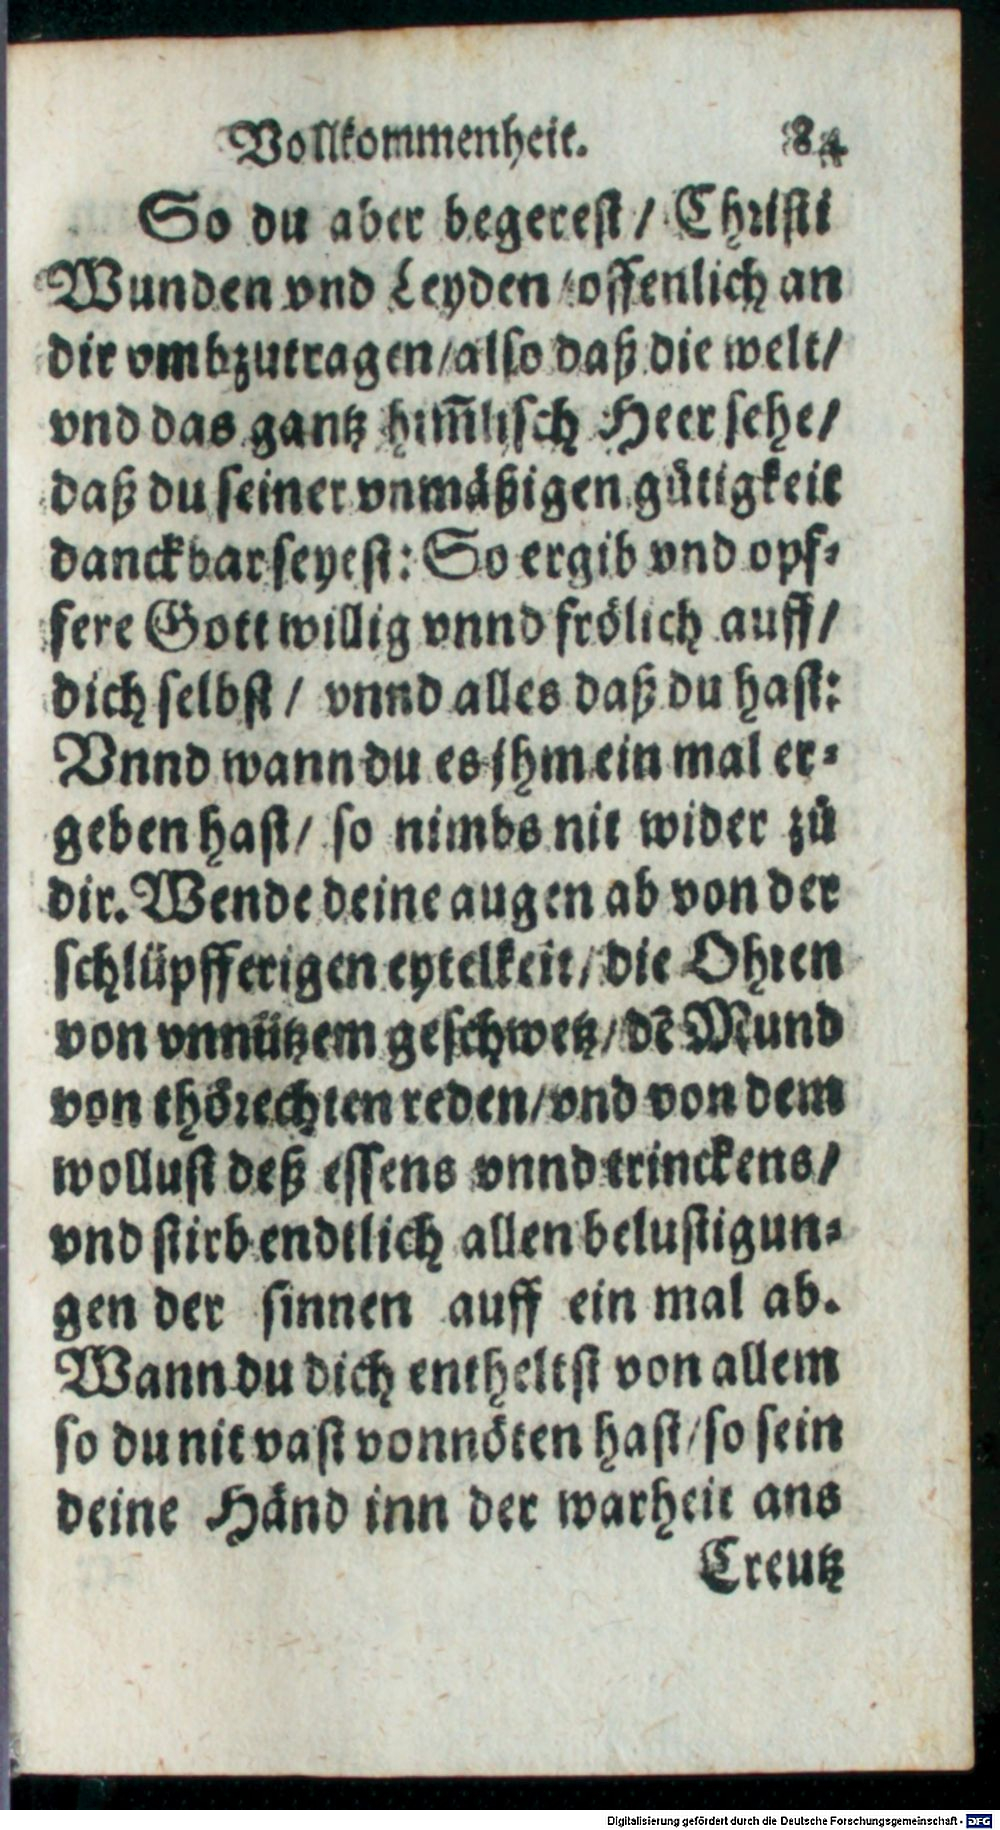 Vollkommenheit. 84
So du aber begerest / Christi
Wunden vnd Leyden / offenlich an
dir vmbzutragen / also daß die welt /
vnd das gantz him̅lisch Heer sehe /
daß du seiner vnmäßigen gütigkeit
danckbar seyest: So ergib vnd opf-
fere Gott willig vnnd frölich auff /
dich selbst / vnnd alles daß du hast:
Vnnd wann du es jhm ein mal er-
geben hast / so nimbs nit wider zů
dir. Wende deine augen ab von der
schlüpfferigen eytelkeit / die Ohren
von vnnützem geschwetz / dē Mund
von thörechten reden / vnd von dem
wollust deß essens vnnd trinckens /
vnd stirb endtlich allen belustigun-
gen der sinnen auff ein mal ab.
Wann du dich entheltst von allem
so du nit vast vonnöten hast / so sein
deine Händ inn der warheit ans
Creutz
Digitalisierung gefördert durch die Deutsche Forschungsgemeinschaft - DFG